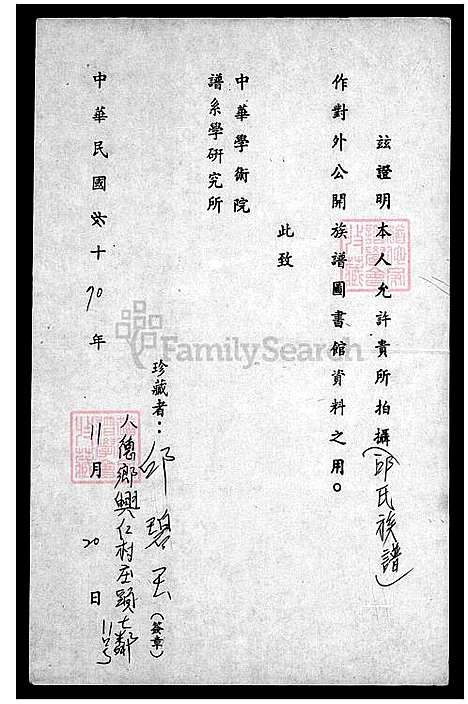 茲證明本人允許貴所拍攝(邱氏族譜)
作對外公開族譜圖書館資料之用。
此致
中華學術院
譜系學研究所
珍藏者：邱碧玉(簽章)
人德鄉興仁村庄頭七鄰11号
中華民國六十70年11月20日
FamilySearch